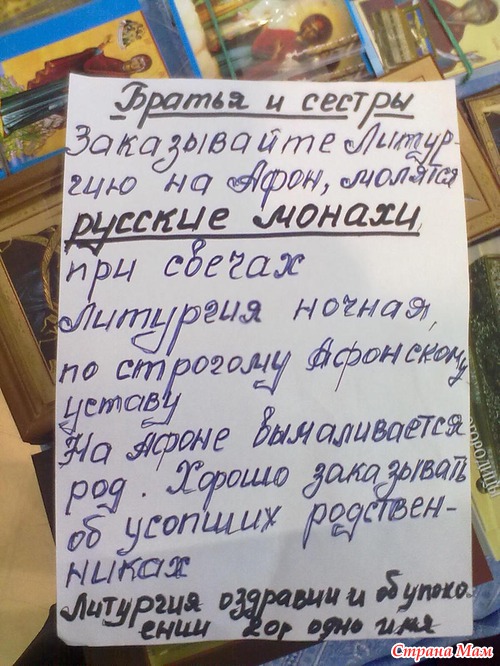 Братья и сестры
Заказывайте Литур-
гию на Афон, молятся
русские монахи,
при свечах
Литургия ночная,
по строгому Афонскому
уставу
На Афоне вымаливается
род. Хорошо заказывать
об усопших родствен-
никах
Литургия оздравии и обупоко
ении 20р одно имя
Страна Мам